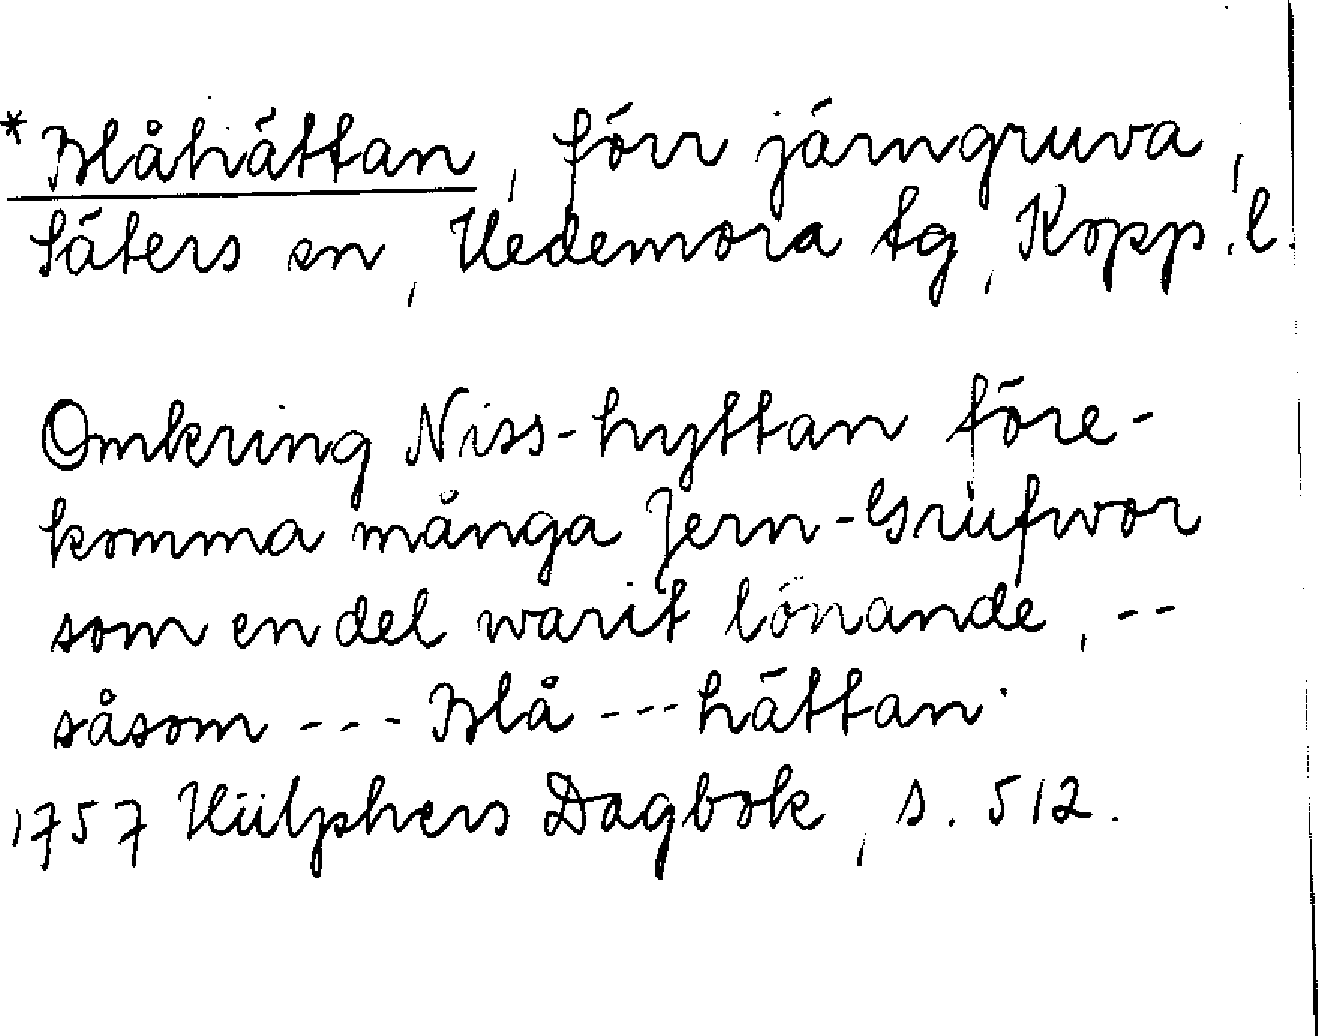 *Blåhättan, förr järngruva,
Säters sn, Hedemora tg, Kopp.l.
Omkring Niss-hyttan före-
komma många Jern-Grufwor
som en del warit lönande, --
såsom --- Blå --- hättan.
1757 Hülphers Dagbok, s. 512.